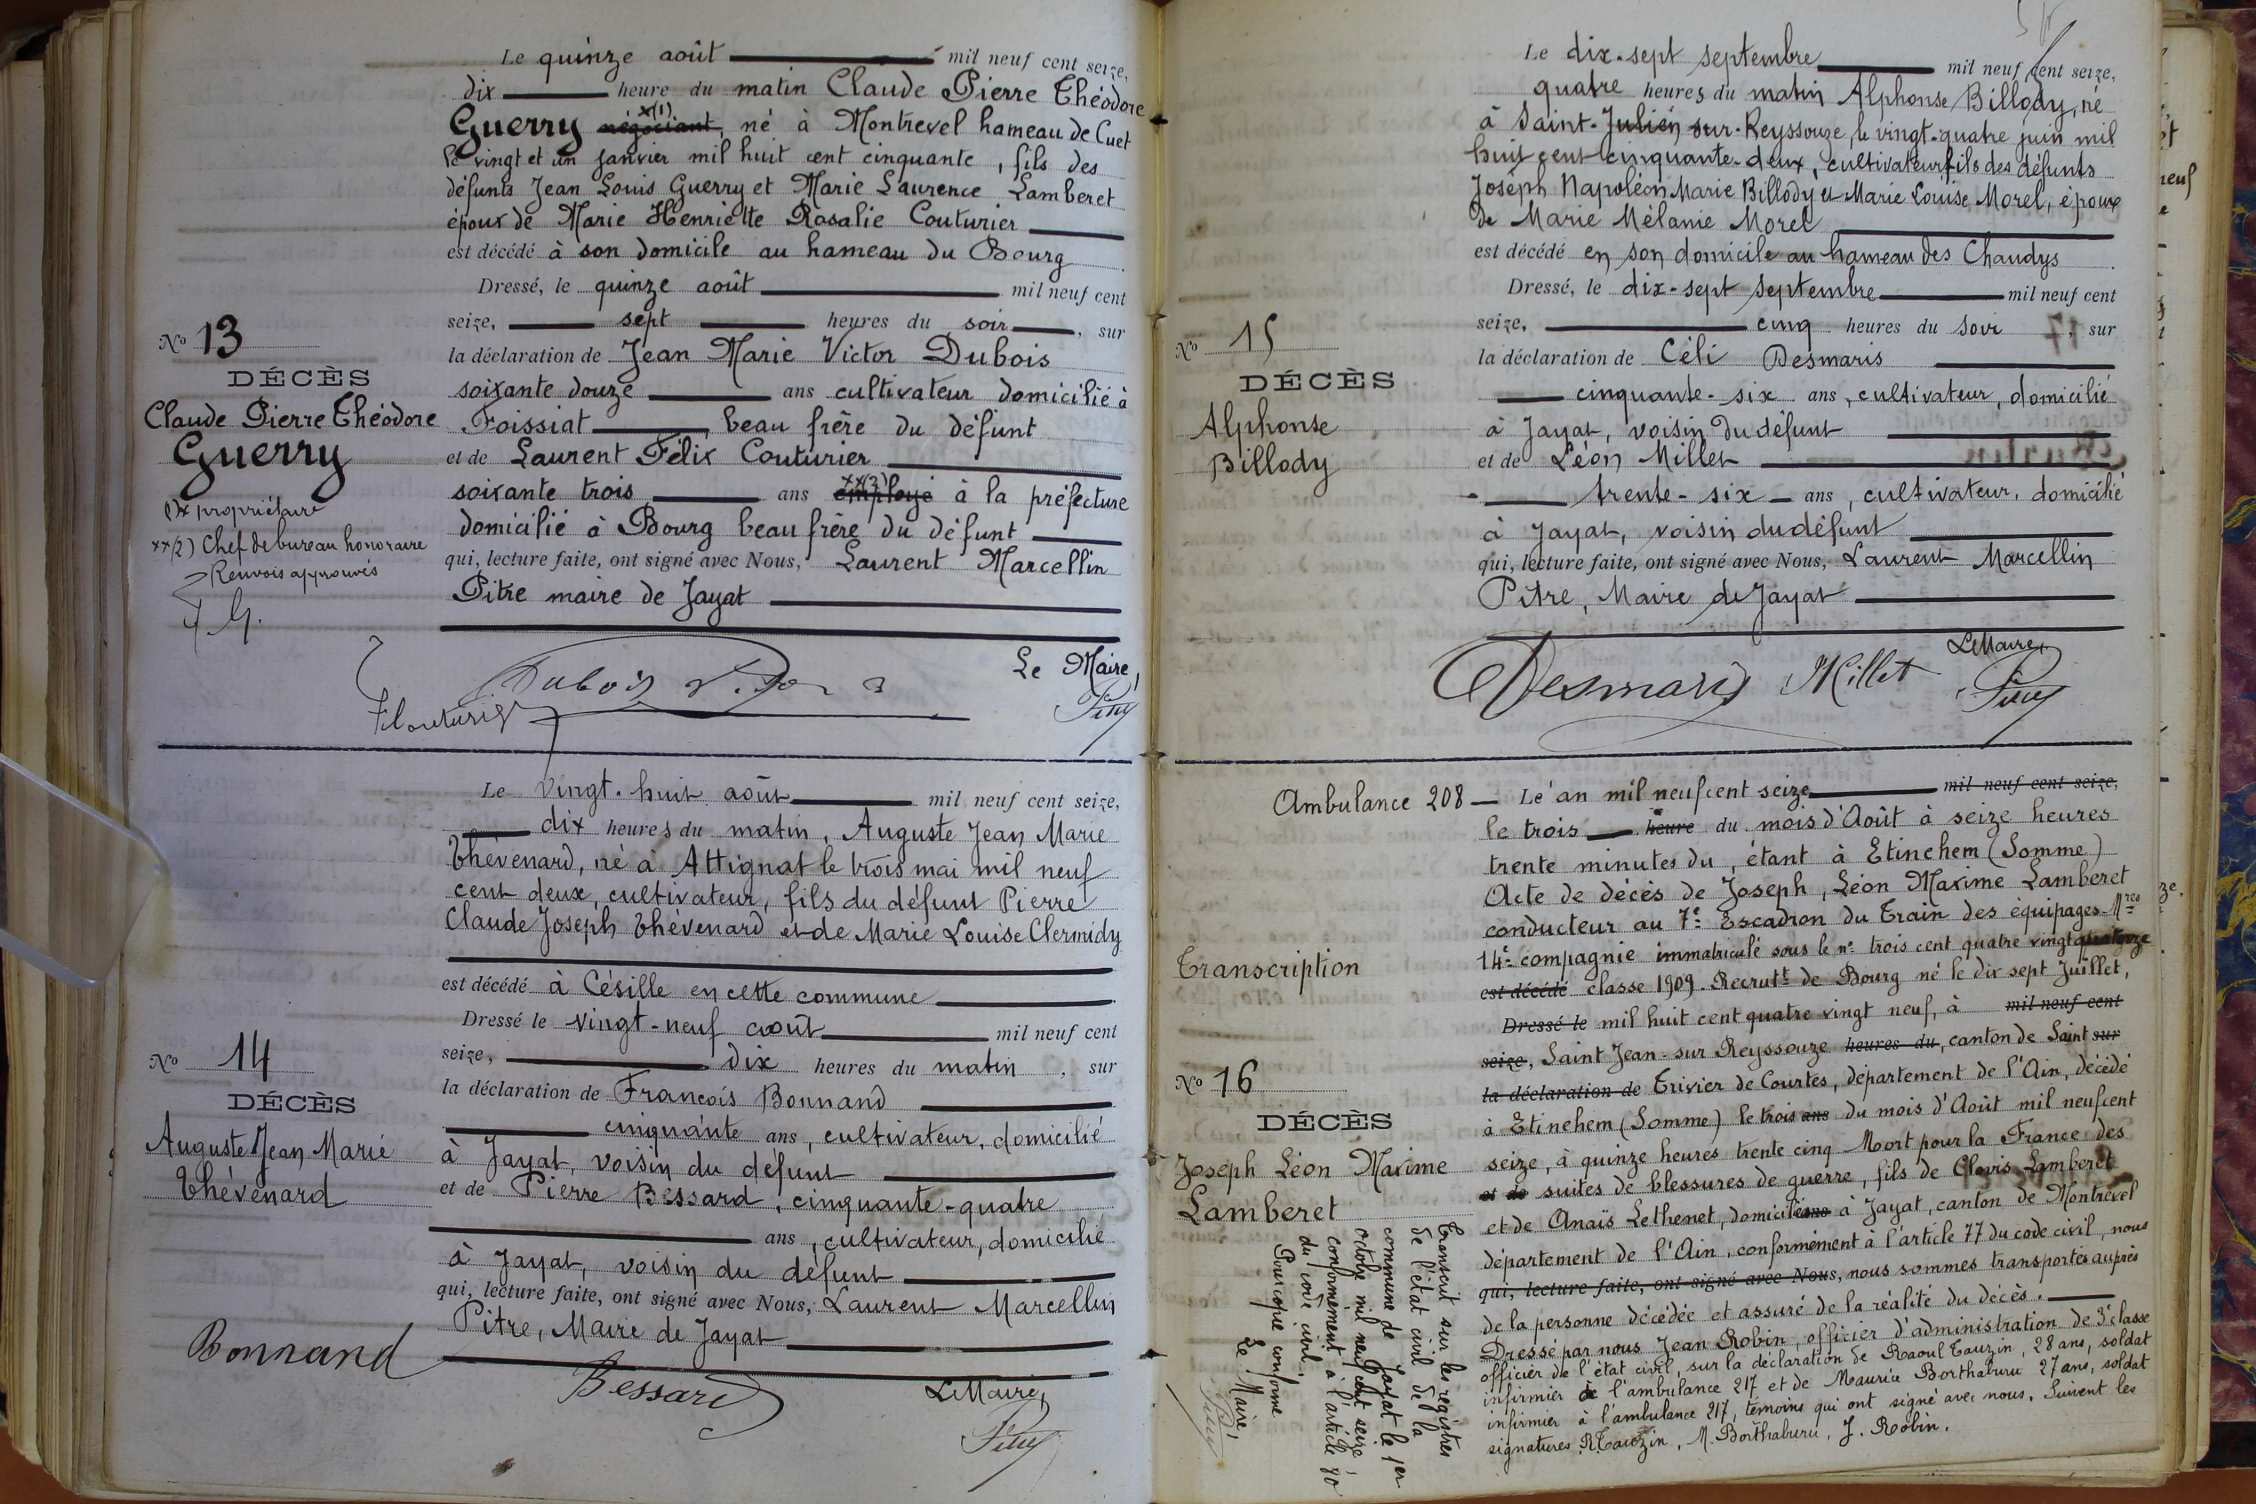 Le quinze août mil neuf cent seize,
dix heure du matin Claude Pierre Théodore
x(1)
Guerry négociant, né à Montrevel hameau de Cuet
le vingt et un janvier mil huit cent cinquante, fils des
défunts Jean Louis Guerry et Marie Laurence Lamberet
époux de Marie Henriette Rosalie Couturier
est décédé à son domicile au hameau du Bourg
Dressé, le quinze août mil neuf cent
seize, sept heures du soir, sur
la déclaration de Jean Marie Victor Dubois
soixante douze ans cultivateur domicilié à
Foissiat beau frère du défunt
et de Laurent Félix Couturier
xx(2)
soixante trois ans employé à la préfecture
domicilié à Bourg beau frère du défunt
qui, lecture faite, ont signé avec Nous, Laurent Marcellin
Pitre maire de Jayat
No 13
DÉCÈS
Claude Pierre Théodore
Guerry
(1)x propriétaire
xx(2) Chef de bureau honoraire
Renvois approuvés
Le Maire,
Dubois
F Couturier
Pitre
Le vingt-huit août mil neuf cent seize,
dix heures du matin, Auguste Jean Marie
Thévenard, né à Attignat le trois mai mil neuf
cent deux, cultivateur, fils du défunt Pierre
Claude Joseph Thévenard et de Marie Louise Clermidy
est décédé à Césille en cette commune
Dressé le vingt-neuf août mil neuf cent
seize, dix heures du matin, sur
la déclaration de François Bonnand
cinquante ans, cultivateur, domicilié
à Jayat, voisin du défunt
et de Pierre Bessard, cinquante-quatre
ans, cultivateur, domicilié
à Jayat, voisin du défunt
qui, lecture faite, ont signé avec Nous, Laurent Marcellin
Pitre, Maire de Jayat
No 14
DÉCÈS
Auguste Jean Marie
Thévenard
Bonnand
Bessard
Le Maire,
Pitre
Le dix-sept septembre mil neuf cent seize,
quatre heures du matin Alphonse Billody, né
à Saint-Julien sur-Reyssouze, le vingt-quatre juin mil
huit cent cinquante-deux, cultivateur fils des défunts
Joseph Napoléon Marie Billody et Marie Louise Morel, époux
de Marie Mélanie Morel
est décédé en son domicile au hameau des Chaudys
Dressé, le dix-sept septembre mil neuf cent
seize, cinq heures du soir, sur
la déclaration de Céli Desmaris
cinquante-six ans, cultivateur, domicilié
à Jayat, voisin du défunt
et de Léon Millet
trente-six ans, cultivateur, domicilié
à Jayat, voisin du défunt
qui, lecture faite, ont signé avec Nous, Laurent Marcellin
Pitre, Maire de Jayat
No 15
DÉCÈS
Alphonse
Billody
Desmaris Millet
Le Maire,
Pitre
Ambulance 208 — Le an mil neuf cent seize mil neuf cent seize,
le trois heure du mois d'Août à seize heures
trente minutes du, étant à Etinehem (Somme)
Acte de décès de Joseph, Léon Maxime Lamberet
conducteur au 7e Escadron du Train des équipages Mres
14e compagnie immatriculé sous le no trois cent quatre vingt quatorze
est décédé classe 1909. Recrutt de Bourg né le dix sept Juillet,
Dressé le mil huit cent quatre vingt neuf, à mil neuf cent
seize, Saint Jean-sur Reyssouze heures du, canton de Saint sur
la déclaration de Trivier de Courtes, département de l'Ain, décédé
à Etinehem (Somme) le trois ans du mois d'Août mil neuf cent
seize, à quinze heures trente cinq Mort pour la France des
et de suites de blessures de guerre, fils de Clovis Lamberet
et de Anaïs Lethenet, domiciliés ans à Jayat, canton de Montrevel
département de l'Ain, conformément à l'article 77 du code civil, nous
qui, lecture faite, ont signé avec Nous, nous sommes transportés auprès
de la personne décédée et assuré de la réalité du décès.
Dressé par nous Jean Robin, officier d'administration de 3e classe
officier de l'état civil, sur la déclaration de Raoul Tauzin, 28 ans, soldat
infirmier de l'ambulance 217 et de Maurice Borthaburu 27 ans, soldat
infirmier à l'ambulance 217, témoins qui ont signé avec nous. Suivent les
signatures R. Tauzin, M. Borthaburu, J. Robin.
Transcription
No 16
DÉCÈS
Joseph Léon Maxime
Lamberet
Transcrit sur les registres
de l'état civil de la
commune de Jayat le 1er
octobre mil neuf cent seize
conformément à l'article 80
du code civil.
Pour copie conforme
Le Maire,
Pitre